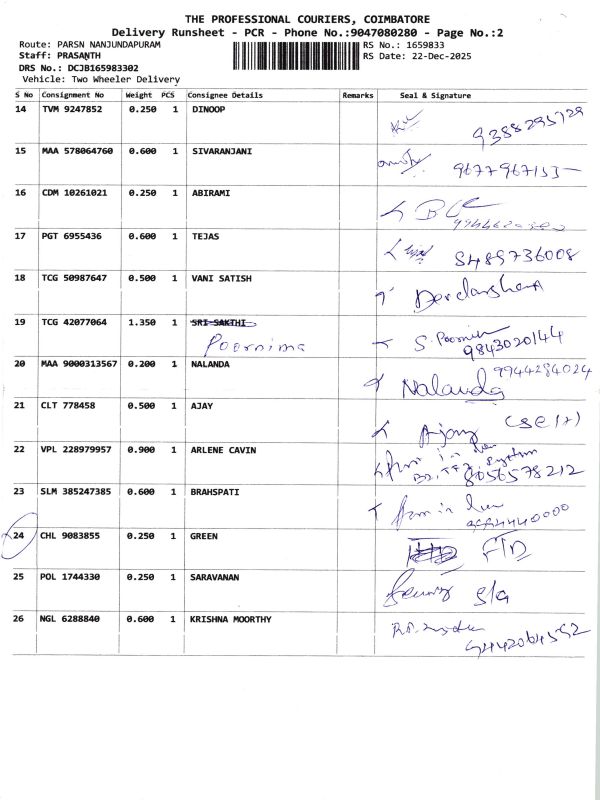 THE PROFESSIONAL COURIERS, COIMBATORE
Delivery Runsheet - PCR - Phone No.:9047080280 - Page No.:2
Route: PARSN NANJUNDAPURAM RS No.: 1659833
Staff: PRASANTH RS Date: 22-Dec-2025
DRS No.: DCJB165983302
Vehicle: Two Wheeler Delivery
S No Consignment No Weight PCS Consignee Details Remarks Seal & Signature
14 TVM 9247852 0.250 1 DINOOP
9388295729
15 MAA 578064760 0.600 1 SIVARANJANI
16 CDM 10261021 0.250 1 ABIRAMI
17 PGT 6955436 0.600 1 TEJAS
8489736008
18 TCG 50987647 0.500 1 VANI SATISH
19 TCG 42077064 1.350 1 SRI SAKTHI
Poornima
9843020144
20 MAA 9000313567 0.200 1 NALANDA 9944284024
Nalanda
21 CLT 778458 0.500 1 AJAY
Ajay
22 VPL 228979957 0.900 1 ARLENE CAVIN
8056578212
23 SLM 385247385 0.600 1 BRAHSPATI
24 CHL 9083855 0.250 1 GREEN
25 POL 1744330 0.250 1 SARAVANAN
26 NGL 6288840 0.600 1 KRISHNA MOORTHY